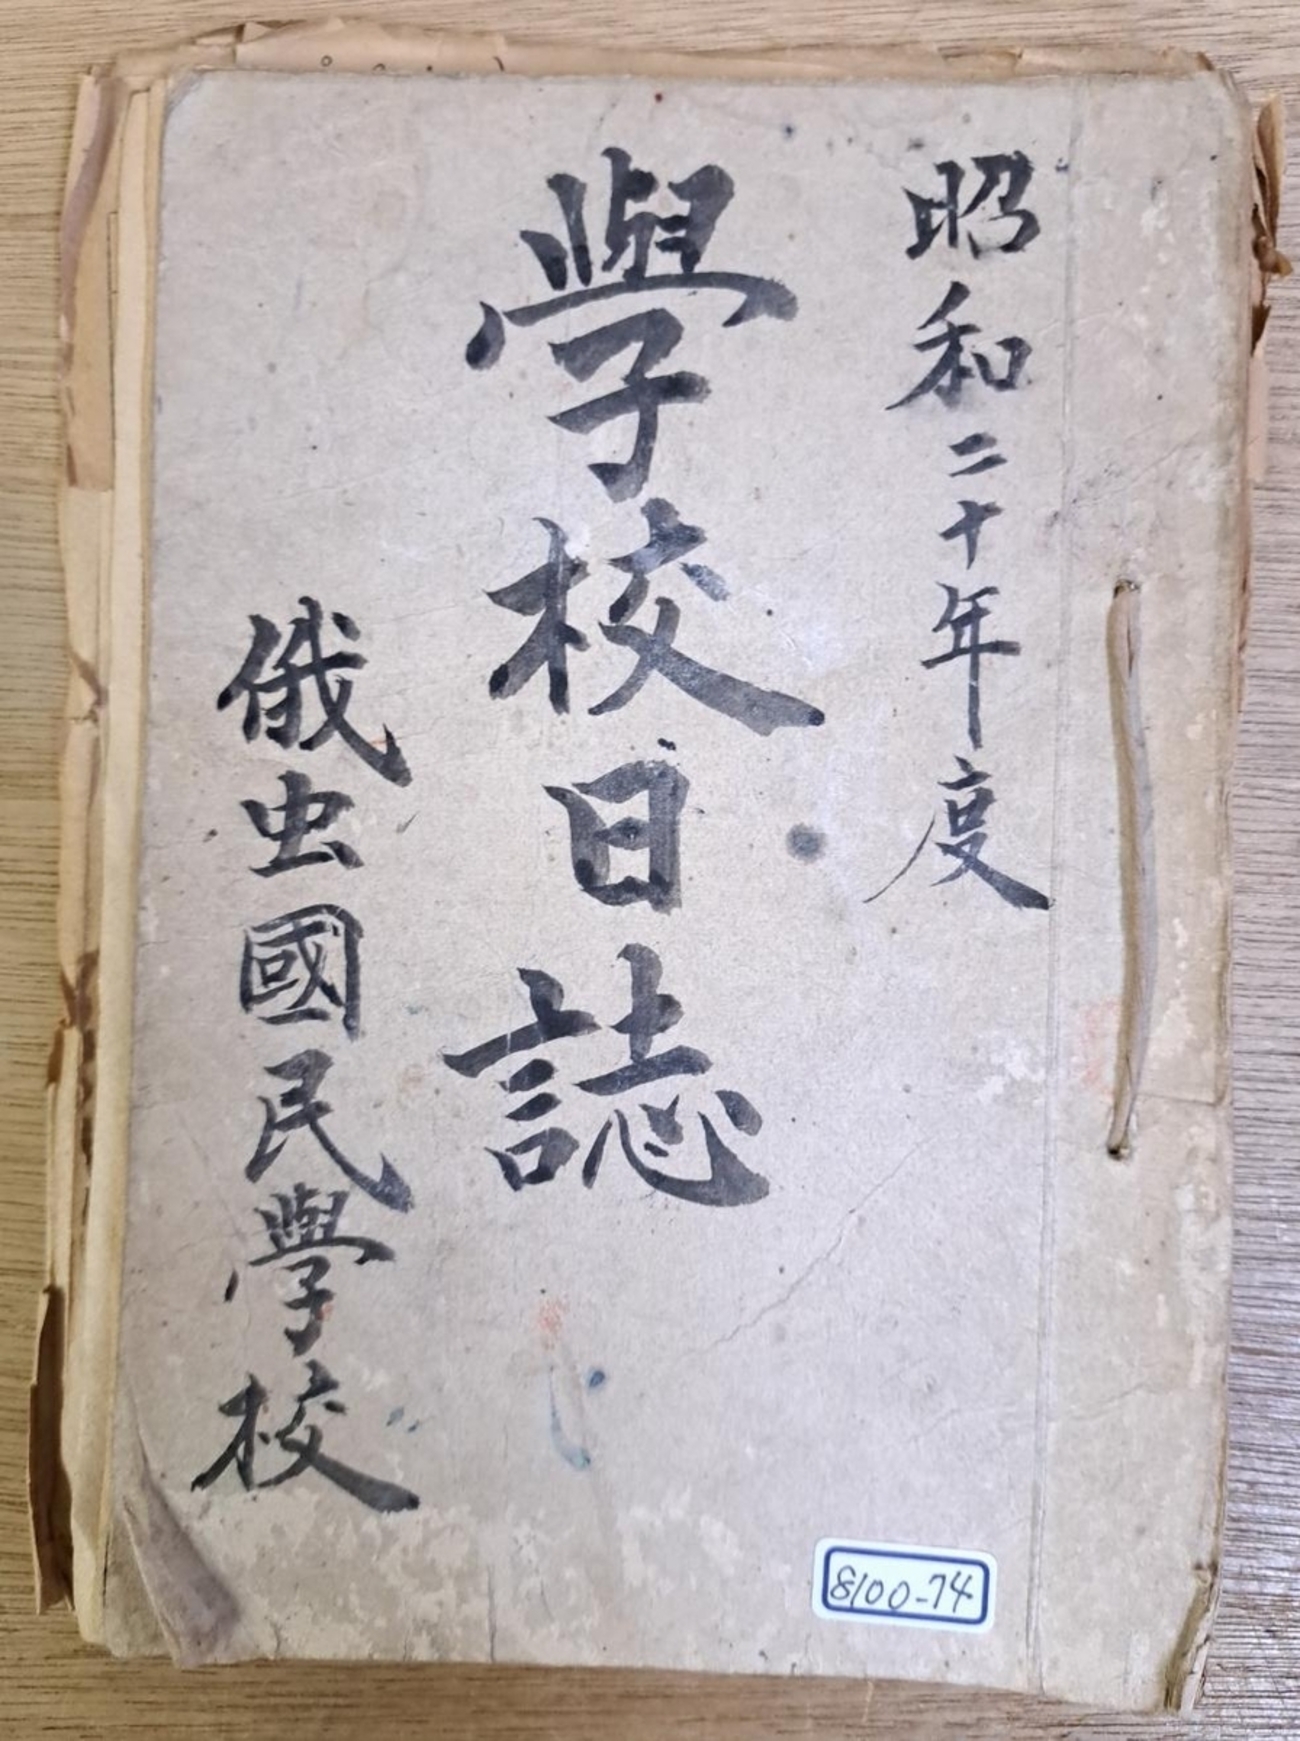 昭和二十年度
學校日誌
俄虫國民學校
8100-74